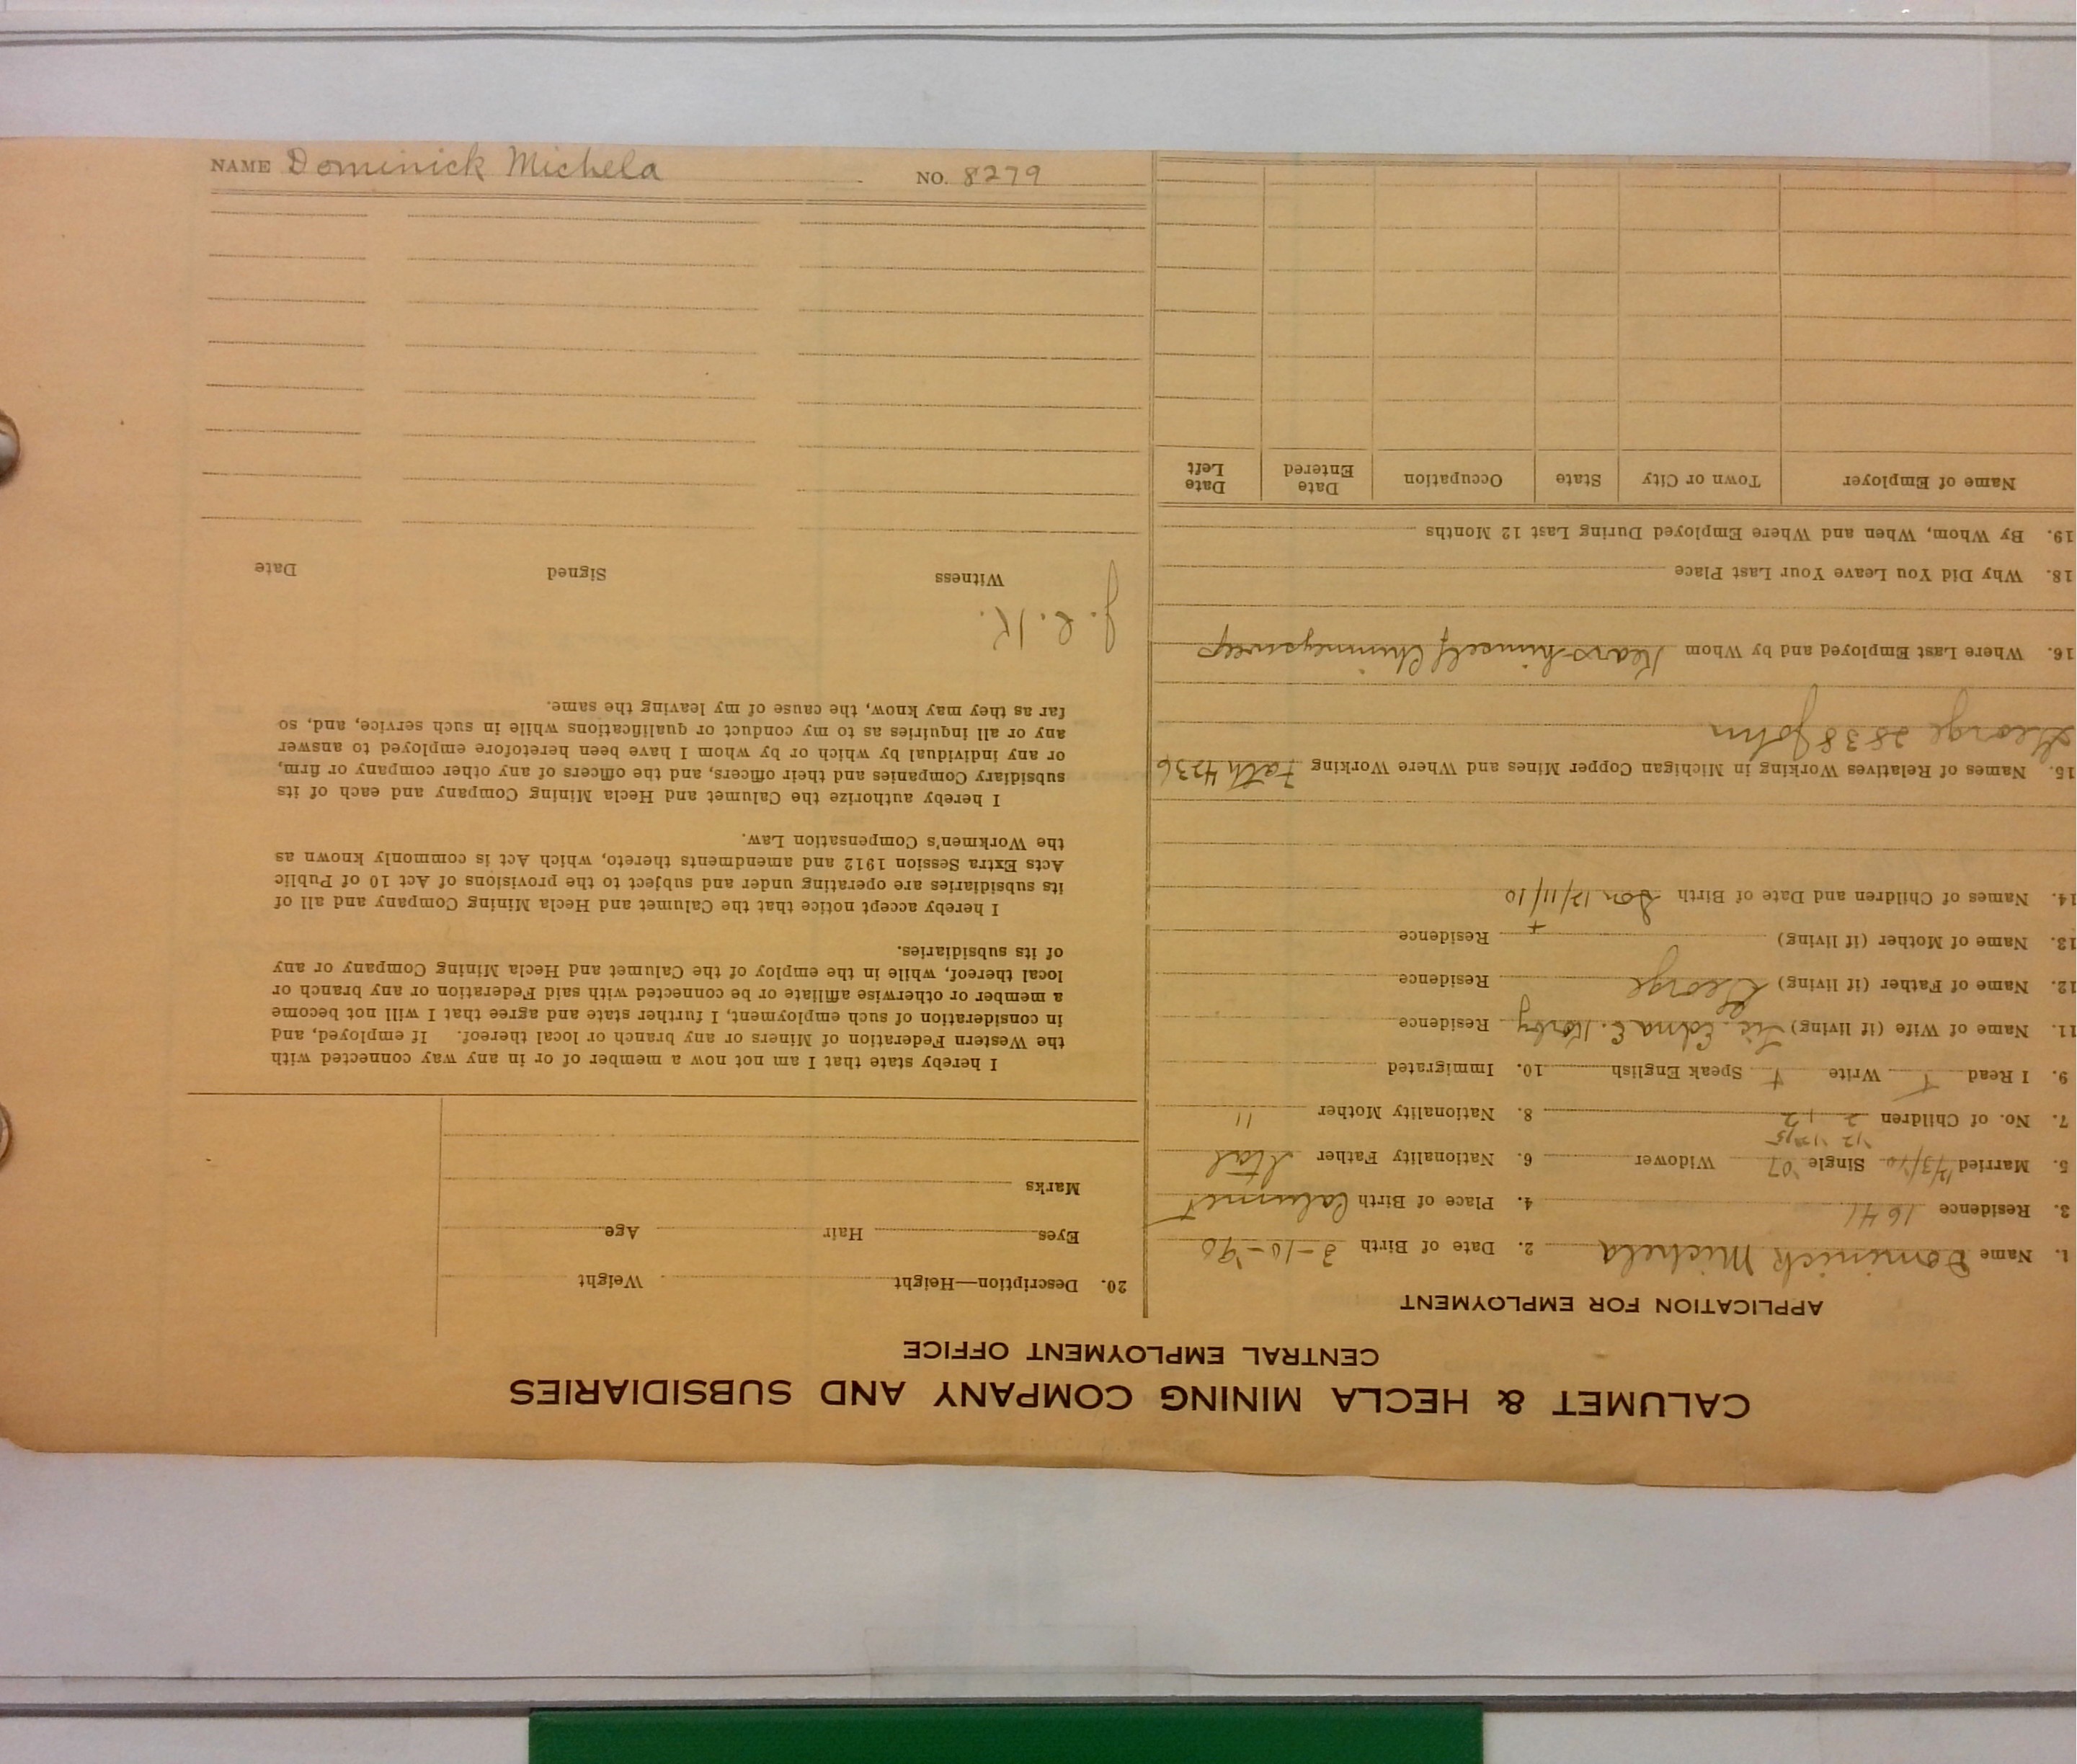 CALUMET & HECLA MINING COMPANY AND SUBSIDIARIES
CENTRAL EMPLOYMENT OFFICE
APPLICATION FOR EMPLOYMENT
1. Name Dominick Michela 2. Date of Birth 3-10-'90
3. Residence 1641 4. Place of Birth Calumet
5. Married 12/3/10 Single '07 Widower 6. Nationality Father Ital
'12 '15
7. No. of Children 2 8. Nationality Mother "
9. I Read + Write + Speak English 10. Immigrated
11. Name of Wife (if living) Lic. Edna E. Residence
12. Name of Father (if living) George Residence
13. Name of Mother (if living) + Residence
14. Names of Children and Date of Birth Son 12/11/10
15. Names of Relatives Working in Michigan Copper Mines and Where Working Fath 4236
George 2838 John
16. Where Last Employed and by Whom himself Chimneysweep
18. Why Did You Leave Your Last Place
19. By Whom, When and Where Employed During Last 12 Months
Name of Employer Town or City State Occupation Date Entered Date Left
20. Description—Height Weight
Eyes Hair Age
Marks
I hereby state that I am not now a member of or in any way connected with
the Western Federation of Miners or any branch or local thereof. If employed, and
in consideration of such employment, I further state and agree that I will not become
a member or otherwise affiliate or be connected with said Federation or any branch or
local thereof, while in the employ of the Calumet and Hecla Mining Company or any
of its subsidiaries.
I hereby accept notice that the Calumet and Hecla Mining Company and all of
its subsidiaries are operating under and subject to the provisions of Act 10 of Public
Acts Extra Session 1912 and amendments thereto, which Act is commonly known as
the Workmen's Compensation Law.
I hereby authorize the Calumet and Hecla Mining Company and each of its
subsidiary Companies and their officers, and the officers of any other company or firm,
or any individual by which or by whom I have been heretofore employed to answer
any or all inquiries as to my conduct or qualifications while in such service, and, so
far as they may know, the cause of my leaving the same.
J. E. K.
Witness Signed Date
NAME Dominick Michela NO. 8279